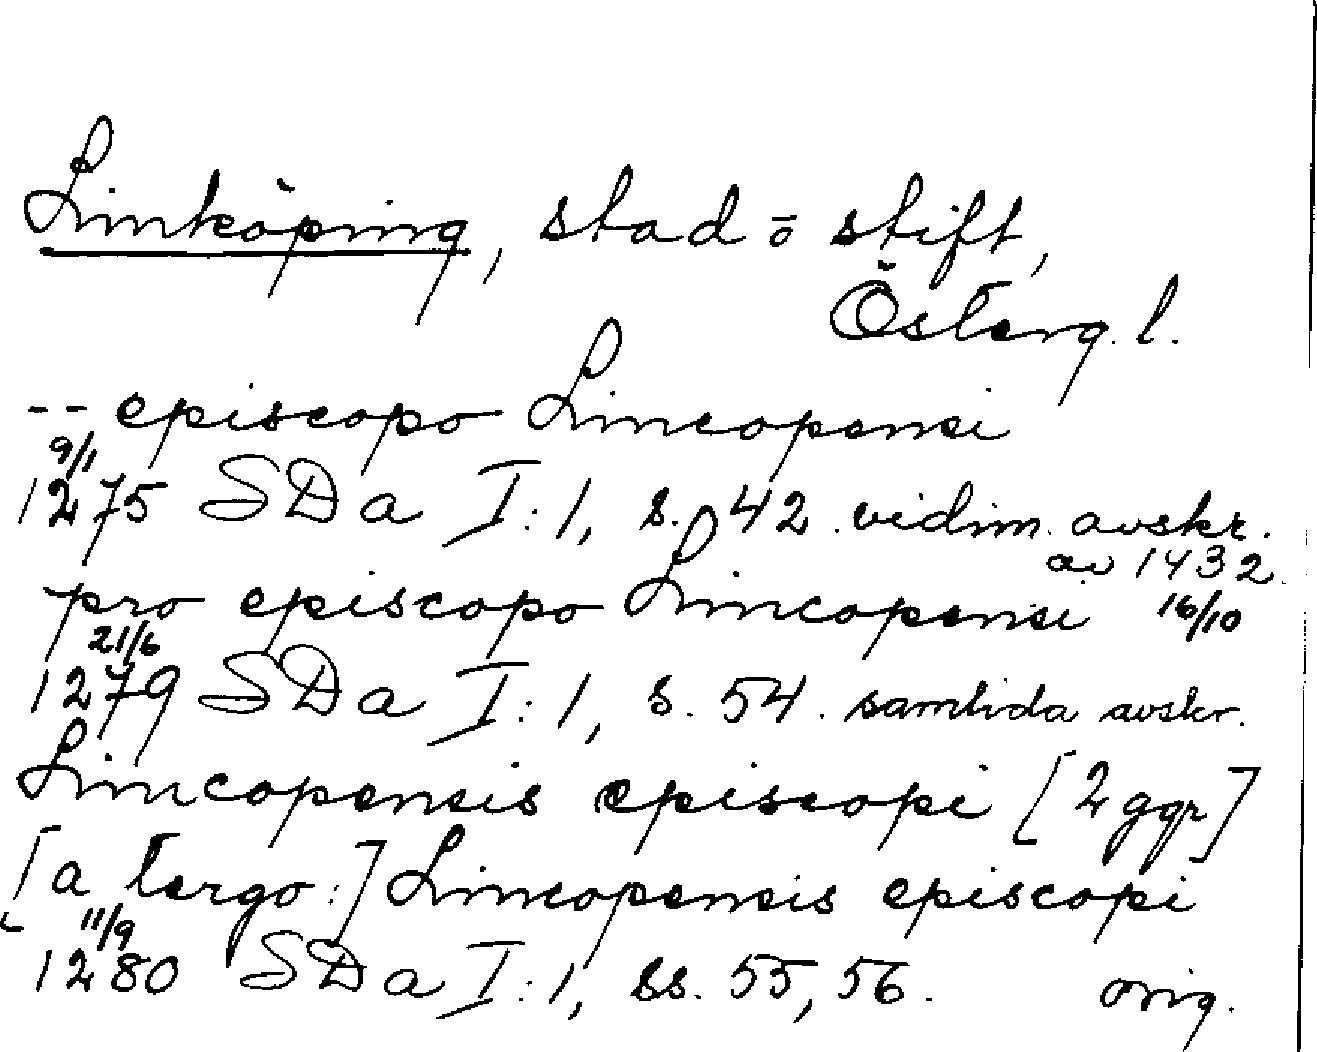 Linköping, stad o stift,
Österg. l.
-- episcopo Lincopensi
9/1
1275 SDa I:1, s. 42. vidim. avskr.
av 1432
pro episcopo Lincopensi 16/10
21/6
1279 SDa I:1, s. 54. samtida avskr.
Lincopensis episcopi [2 ggr]
[a tergo:] Lincopensis episcopi
11/9
1280 SDa I:1, ss. 55, 56. orig.